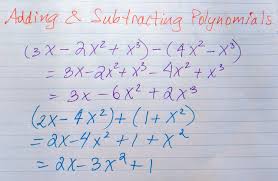 Adding & Subtracting Polynomials
(3x - 2x² + x³) - (4x² - x³)
= 3x - 2x² + x³ - 4x² + x³
= 3x - 6x² + 2x³
(2x - 4x²) + (1 + x²)
= 2x - 4x² + 1 + x²
= 2x - 3x² + 1